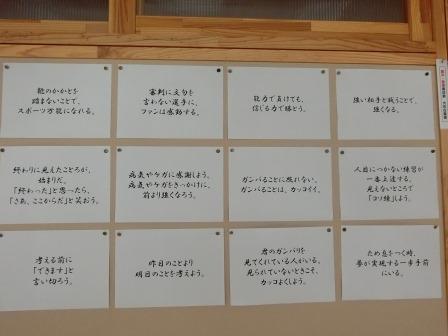 靴のかかとを
踏まないことで、
スポーツ万能になれる。
審判に文句を
言わない選手に、
ファンは感動する。
能力で負けても、
信じる力で勝とう。
強い相手と戦うことで、
強くなる。
終わりに見えたところが、
始まりだ。
「終わった」と思ったら、
「さあ、ここからだ」と笑おう。
病気やケガに感謝しよう。
病気やケガをきっかけに、
前より強くなろう。
ガンバることに照れない。
ガンバることは、カッコイイ。
人目につかない練習が
一番上達する。
見えないところで
「コソ練」しよう。
考える前に
「できます」と
言い切ろう。
昨日のことより
明日のことを考えよう。
君のガンバリを
見てくれている人がいる。
見られていないときこそ、
カッコよくしよう。
ため息をつく時、
夢が実現する一歩手前
にいる。